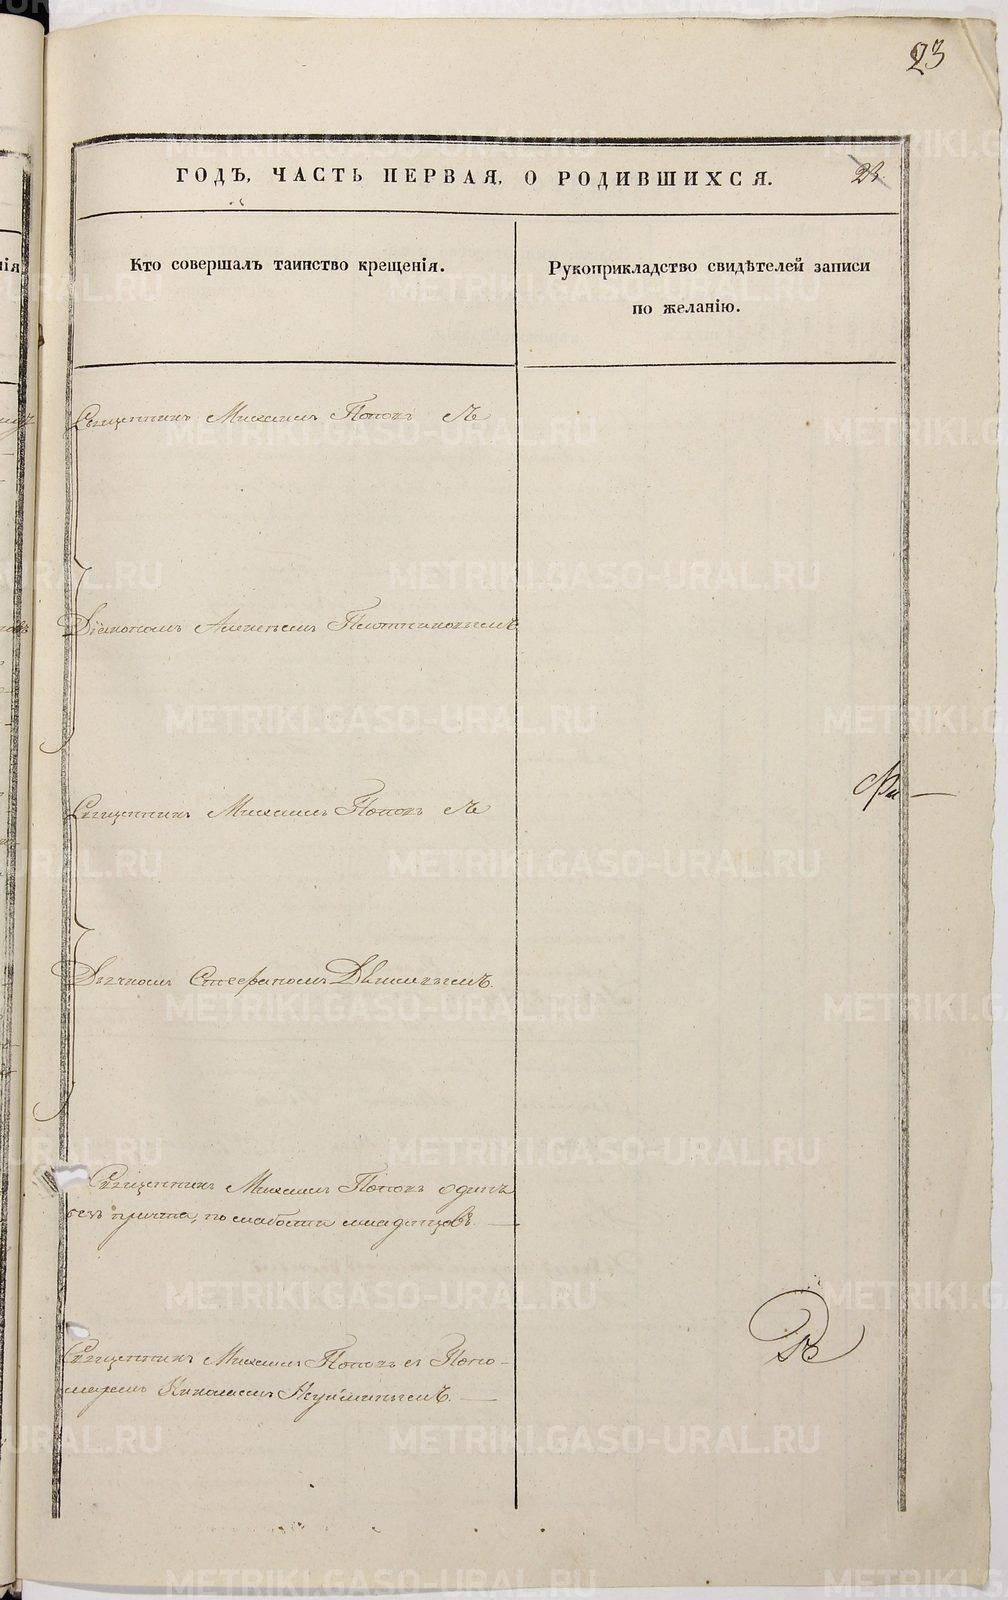 23
ГОДЪ, ЧАСТЬ ПЕРВАЯ, О РОДИВШИХСЯ.
23.
Кто совершалъ таинство крещенія.
Рукоприкладство свидѣтелей записи
по желанію.
Священникъ Михаилъ Поповъ съ
Діакономъ Алексѣемъ Плотниковымъ
Священникъ Михаилъ Поповъ съ
Дьячкомъ Стефаномъ
Священникъ Михаилъ Поповъ одинъ
безъ причта, по слабости младенцовъ.
Священникъ Михаилъ Поповъ съ Поно-
маремъ Николаемъ
METRIKI.GASO-URAL.RU